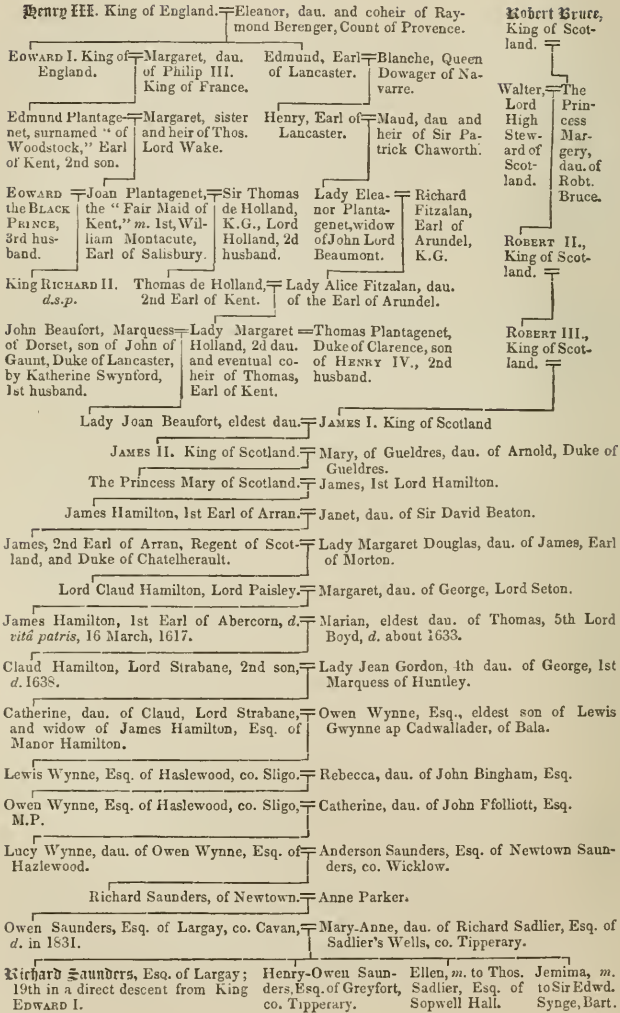 Henry III. King of England.=Eleanor, dau. and coheir of Ray-
mond Berenger, Count of Provence.
Robert Bruce,
King of Scot-
land. =
EDWARD I. King of
England.
=Margaret, dau.
of Philip III.
King of France.
Edmund, Earl
of Lancaster.
=Blanche, Queen
Dowager of Na-
varre.
Walter,
Lord
High
Stew-
ard of
Scot-
land.
=The
Prin-
cess
Mar-
gery,
dau. of
Robt.
Bruce.
Edmund Plantage-
net, surnamed "of
Woodstock," Earl
of Kent, 2nd son.
=Margaret, sister
and heir of Thos.
Lord Wake.
Henry, Earl of
Lancaster.
=Maud, dau and
heir of Sir Pa-
trick Chaworth.
EDWARD
the BLACK
PRINCE,
3rd hus-
band.
=Joan Plantagenet,
the "Fair Maid of
Kent," m. 1st, Wil-
liam Montacute,
Earl of Salisbury.
=Sir Thomas
de Holland,
K.G., Lord
Holland, 2d
husband.
Lady Elea-
nor Planta-
genet, widow
of John Lord
Beaumont.
= Richard
Fitzalan,
Earl of
Arundel,
K.G.
ROBERT II.,
King of Scot-
land. =
King RICHARD II.
d.s.p.
Thomas de Holland,
2nd Earl of Kent.
= Lady Alice Fitzalan, dau.
of the Earl of Arundel.
John Beaufort, Marquess
of Dorset, son of John of
Gaunt, Duke of Lancaster,
by Katherine Swynford,
1st husband.
=Lady Margaret
Holland, 2d dau.
and eventual co-
heir of Thomas,
Earl of Kent.
=Thomas Plantagenet,
Duke of Clarence, son
of HENRY IV., 2nd
husband.
ROBERT III.,
King of Scot-
land. =
Lady Joan Beaufort, eldest dau.=JAMES I. King of Scotland
JAMES II. King of Scotland.=Mary, of Gueldres, dau. of Arnold, Duke of
Gueldres.
The Princess Mary of Scotland.=James, 1st Lord Hamilton.
James Hamilton, 1st Earl of Arran.=Janet, dau. of Sir David Beaton.
James, 2nd Earl of Arran, Regent of Scot-
land, and Duke of Chatelherault.
=Lady Margaret Douglas, dau. of James, Earl
of Morton.
Lord Claud Hamilton, Lord Paisley.=Margaret, dau. of George, Lord Seton.
James Hamilton, 1st Earl of Abercorn, d.
vitâ patris, 16 March, 1617.
=Marian, eldest dau. of Thomas, 5th Lord
Boyd, d. about 1633.
Claud Hamilton, Lord Strabane, 2nd son,
d. 1638.
=Lady Jean Gordon, 4th dau. of George, 1st
Marquess of Huntley.
Catherine, dau. of Claud, Lord Strabane,
and widow of James Hamilton, Esq. of
Manor Hamilton.
=Owen Wynne, Esq., eldest son of Lewis
Gwynne ap Cadwallader, of Bala.
Lewis Wynne, Esq. of Haslewood, co. Sligo.=Rebecca, dau. of John Bingham, Esq.
Owen Wynne, Esq. of Haslewood, co. Sligo,
M.P.
=Catherine, dau. of John Ffolliott, Esq.
Lucy Wynne, dau. of Owen Wynne, Esq. of
Hazlewood.
=Anderson Saunders, Esq. of Newtown Saun-
ders, co. Wicklow.
Richard Saunders, of Newtown.=Anne Parker.
Owen Saunders, Esq. of Largay, co. Cavan,
d. in 1831.
=Mary-Anne, dau. of Richard Sadlier, Esq. of
Sadlier's Wells, co. Tipperary.
Richard Saunders, Esq. of Largay;
19th in a direct descent from King
EDWARD I.
Henry-Owen Saun-
ders, Esq. of Greyfort,
co. Tipperary.
Ellen, m. to Thos.
Sadlier, Esq. of
Sopwell Hall.
Jemima, m.
to Sir Edwd.
Synge, Bart.